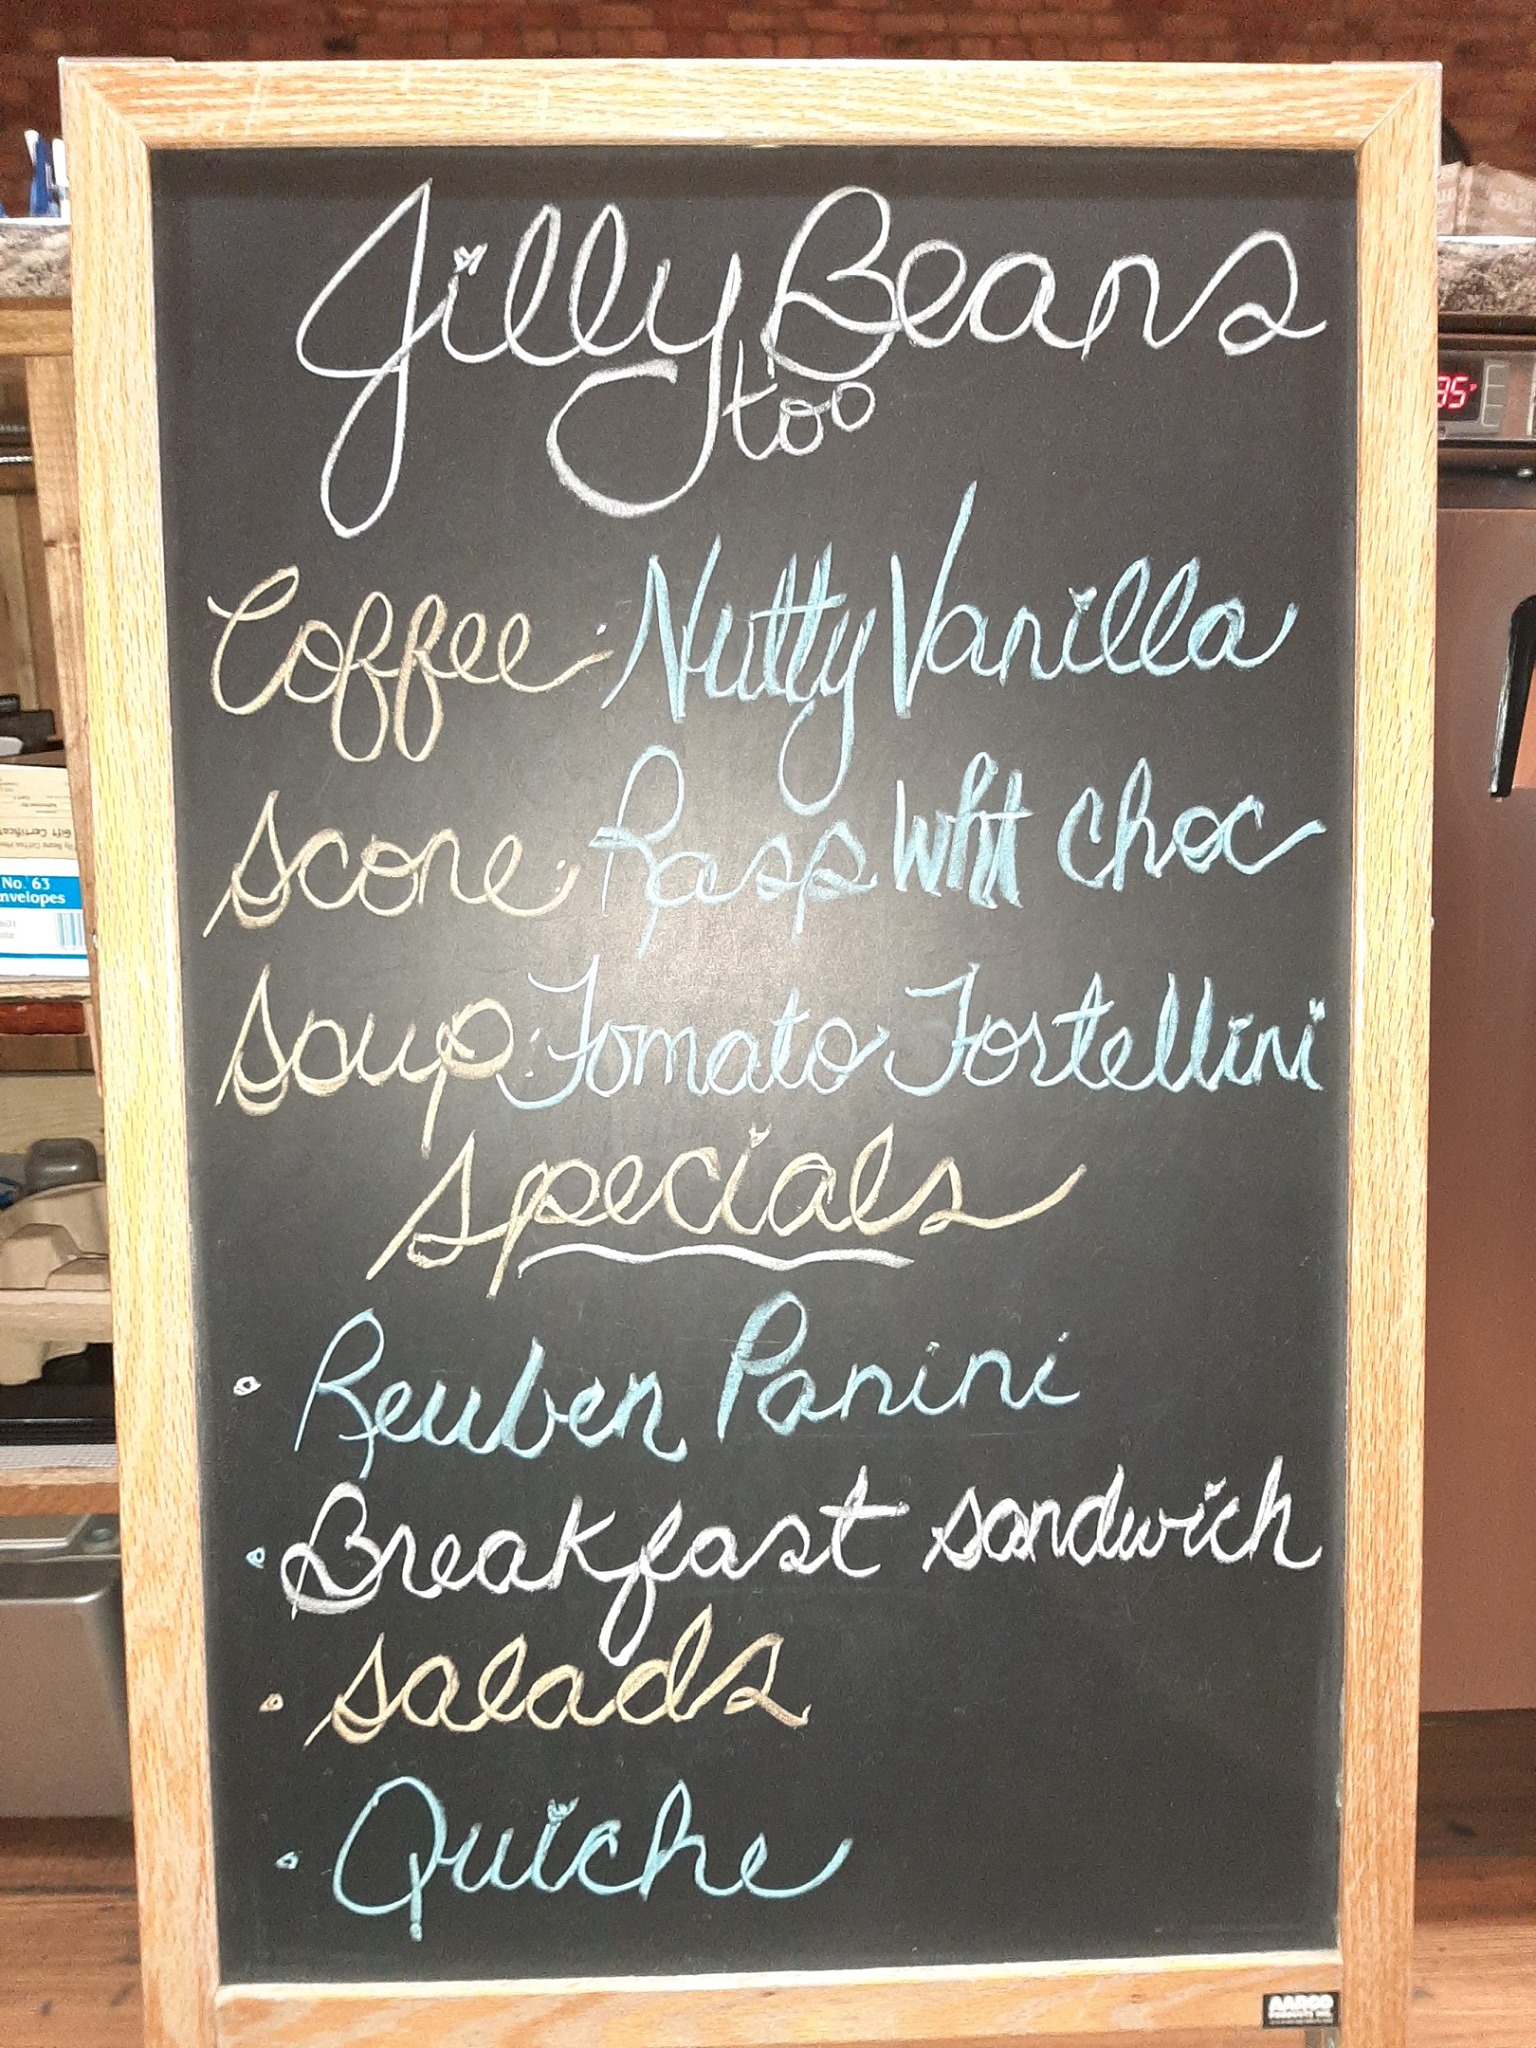 Jilly Beans
too
Coffee: Nutty Vanilla
scone: Rasp Wht Choc
Soup: Tomato Tortellini
Specials
· Reuben Panini
· Breakfast sandwich
· Salads
· Quiche
No. 63
nvelopes
Gift Certifica
95°F
AARCO